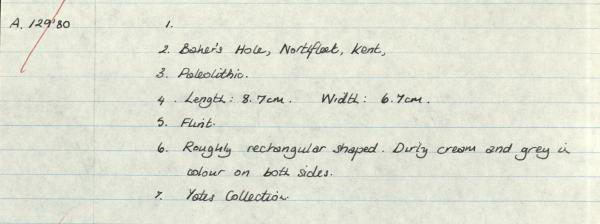 A. 129'80 1.
2. Baker's Hole, Northfleet, Kent,
3. Paleolithic.
4. Length: 8.7cm. Width: 6.7cm.
5. Flint.
6. Roughly rectangular shaped. Dirty cream and grey in
colour on both sides.
7. Yates Collection.